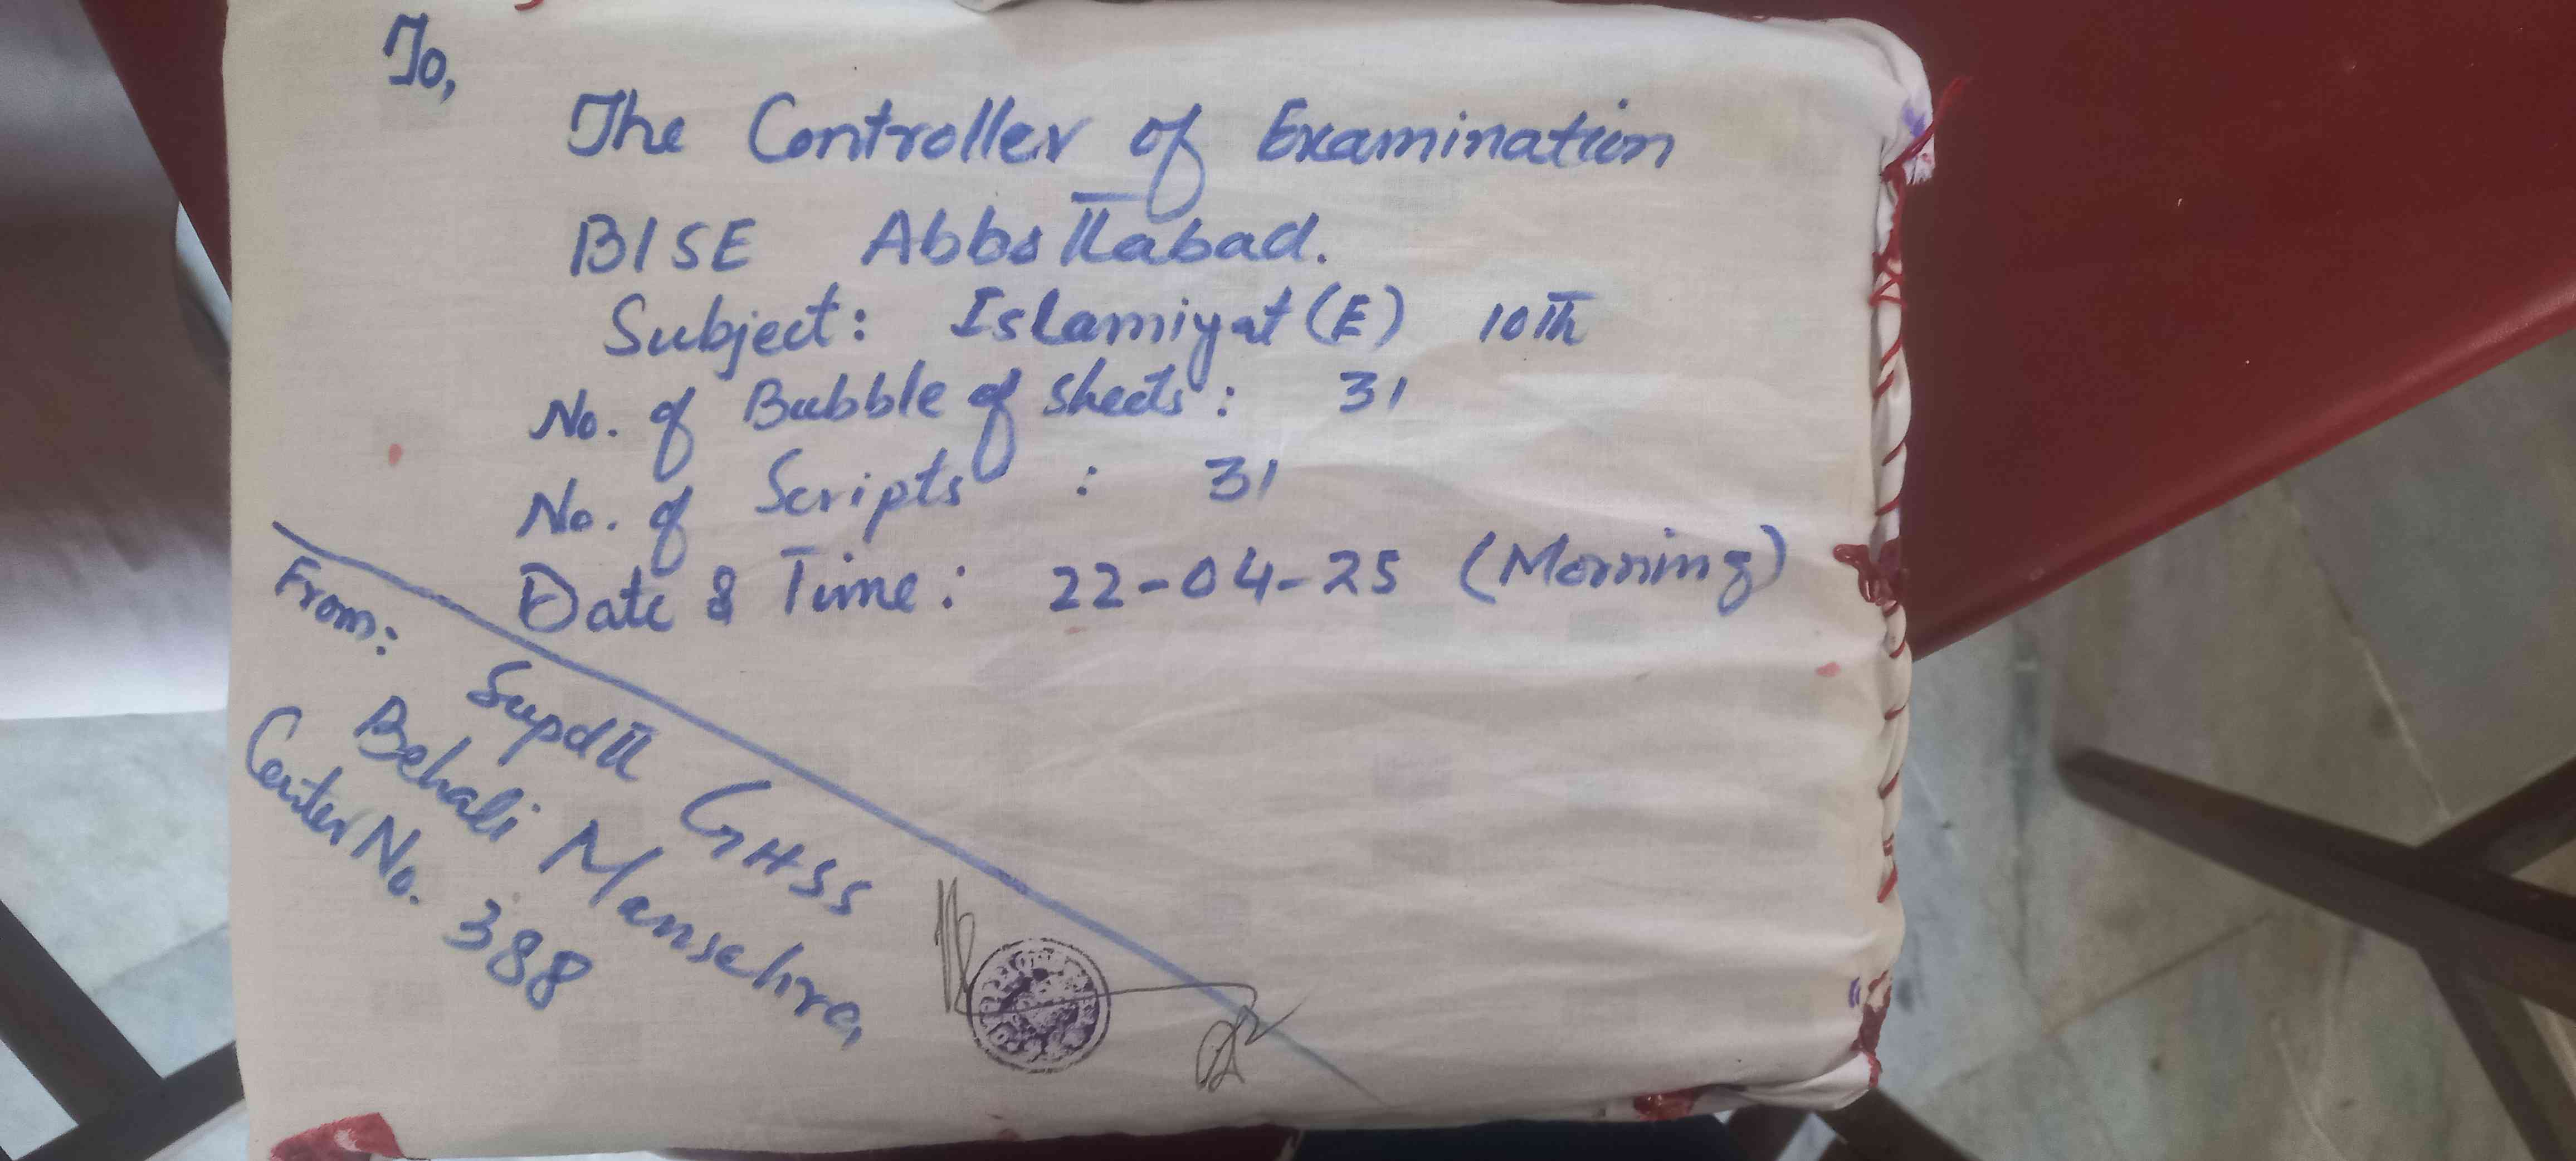 To,
The Controller of Examination
BISE Abbottabad.
Subject: Islamiyat (E) 10th
No. of Bubble of sheets : 31
No. of Scripts : 31
Date & Time : 22-04-25 (Morning)
From:
Supdtt GHSS
Behali Mansehra,
Center No. 388